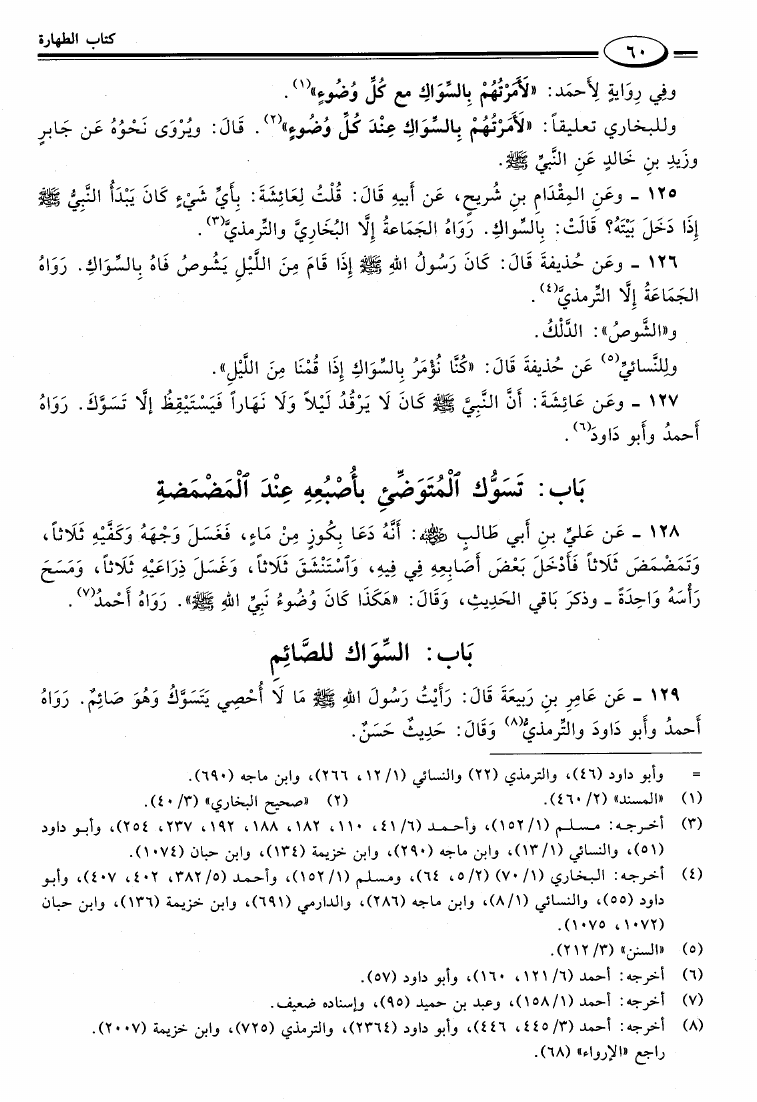 ٦٠ كتاب الطهارة
وفي رِوَايَةٍ لِأَحمَد: «لَأَمَرْتُهُمْ بِالسِّوَاكِ مع كُلِّ وُضُوءٍ»(١).
وللبخاري تعليقاً: «لَأَمَرْتُهُمْ بِالسِّوَاكِ عِنْدَ كُلِّ وُضُوءٍ»(٢). قَالَ: ويُرْوَى نَحْوُهُ عَن جَابرٍ
وزَيدِ بنِ خَالدٍ عَنِ النَّبيِّ ﷺ.
١٢٥ ـ وعَنِ المِقْدَامِ بنِ شُريحٍ، عَن أَبيهِ قَالَ: قُلْتُ لِعَائشَةَ: بِأَيِّ شَيْءٍ كَانَ يَبْدَأُ النَّبيُّ ﷺ
إِذَا دَخَلَ بَيْتَهُ؟ قَالَتْ: بِالسِّواكِ. رَوَاهُ الجَمَاعةُ إِلَّا البُخَاريَّ والتِّرمذيَّ(٣).
١٢٦ ـ وعَن حُذيفةَ قَالَ: كَانَ رَسُولُ اللهِ ﷺ إِذَا قَامَ مِنَ اللَّيْلِ يَشُوصُ فَاهُ بِالسِّوَاكِ. رَوَاهُ
الجَمَاعَةُ إِلَّا التِّرمذيَّ(٤).
و«الشَّوصُ»: الدَّلْكُ.
ولِلنَّسائيِّ(٥) عَن حُذيفةَ قَالَ: «كُنَّا نُؤْمَرُ بِالسِّوَاكِ إِذَا قُمْنَا مِنَ اللَّيْلِ».
١٢٧ ـ وعَن عَائِشَةَ: أَنَّ النَّبيَّ ﷺ كَانَ لَا يَرْقُدُ لَيْلاً وَلَا نَهَاراً فَيَسْتَيْقِظُ إِلَّا تَسَوَّكَ. رَوَاهُ
أَحمدُ وأَبو دَاودَ(٦).
بَاب: تَسَوُّك ٱلْمُتَوَضِّئِ بِأُصْبُعِهِ عِنْدَ ٱلْمَضْمَضةِ
١٢٨ ـ عَن عَليِّ بنِ أَبي طَالبٍ رضي الله عنه: أَنَّهُ دَعَا بِكُوزٍ مِنْ مَاءٍ، فَغَسَلَ وَجْهَهُ وَكَفَّيْهِ ثَلَاثاً،
وَتَمَضْمَضَ ثَلَاثاً فَأَدْخَلَ بَعْضَ أَصَابِعِهِ فِي فِيهِ، وَٱسْتَنْشَقَ ثَلَاثاً، وَغَسَلَ ذِرَاعَيْهِ ثَلَاثاً، وَمَسَحَ
رَأْسَهُ وَاحِدَةً ـ وذكَرَ بَاقي الحَديثِ، وَقَالَ: «هَكَذَا كَانَ وُضُوءُ نَبِيِّ اللهِ ﷺ». رَوَاهُ أَحْمدُ(٧).
بَاب: السِّوَاك للصَّائِمِ
١٢٩ ـ عَن عَامِرِ بنِ رَبِيعَةَ قَالَ: رَأَيْتُ رَسُولَ اللهِ ﷺ مَا لَا أُحْصِي يَتَسَوَّكُ وَهُوَ صَائِمٌ. رَوَاهُ
أَحمدُ وأَبو دَاودَ والتِّرمذيُّ(٨) وَقَالَ: حَدِيثٌ حَسَنٌ.
= وأبو داود (٤٦)، والترمذي (٢٢) والنسائي (١/ ١٢، ٢٦٦)، وابن ماجه (٦٩٠).
(١) «المسند» (٢/ ٤٦٠). (٢) «صحيح البخاري» (٣/ ٤٠).
(٣) أخرجه: مسلم (١/ ١٥٢)، وأحمد (٦/ ٤١، ١١٠، ١٨٢، ١٨٨، ١٩٢، ٢٣٧، ٢٥٤)، وأبو داود
(٥١)، والنسائي (١/ ١٣)، وابن ماجه (٢٩٠)، وابن خزيمة (١٣٤)، وابن حبان (١٠٧٤).
(٤) أخرجه: البخاري (١/ ٧٠) (٢/ ٥، ٦٤)، ومسلم (١/ ١٥٢)، وأحمد (٥/ ٣٨٢، ٤٠٢، ٤٠٧)، وأبو
داود (٥٥)، والنسائي (١/ ٨)، وابن ماجه (٢٨٦)، والدارمي (٦٩١)، وابن خزيمة (١٣٦)، وابن حبان
(١٠٧٢، ١٠٧٥).
(٥) «السنن» (٣/ ٢١٢).
(٦) أخرجه: أحمد (٦/ ١٢١، ١٦٠)، وأبو داود (٥٧).
(٧) أخرجه: أحمد (١/ ١٥٨)، وعبد بن حميد (٩٥)، وإسناده ضعيف.
(٨) أخرجه: أحمد (٣/ ٤٤٥، ٤٤٦)، وأبو داود (٢٣٦٤)، والترمذي (٧٢٥)، وابن خزيمة (٢٠٠٧).
راجع «الإرواء» (٦٨).